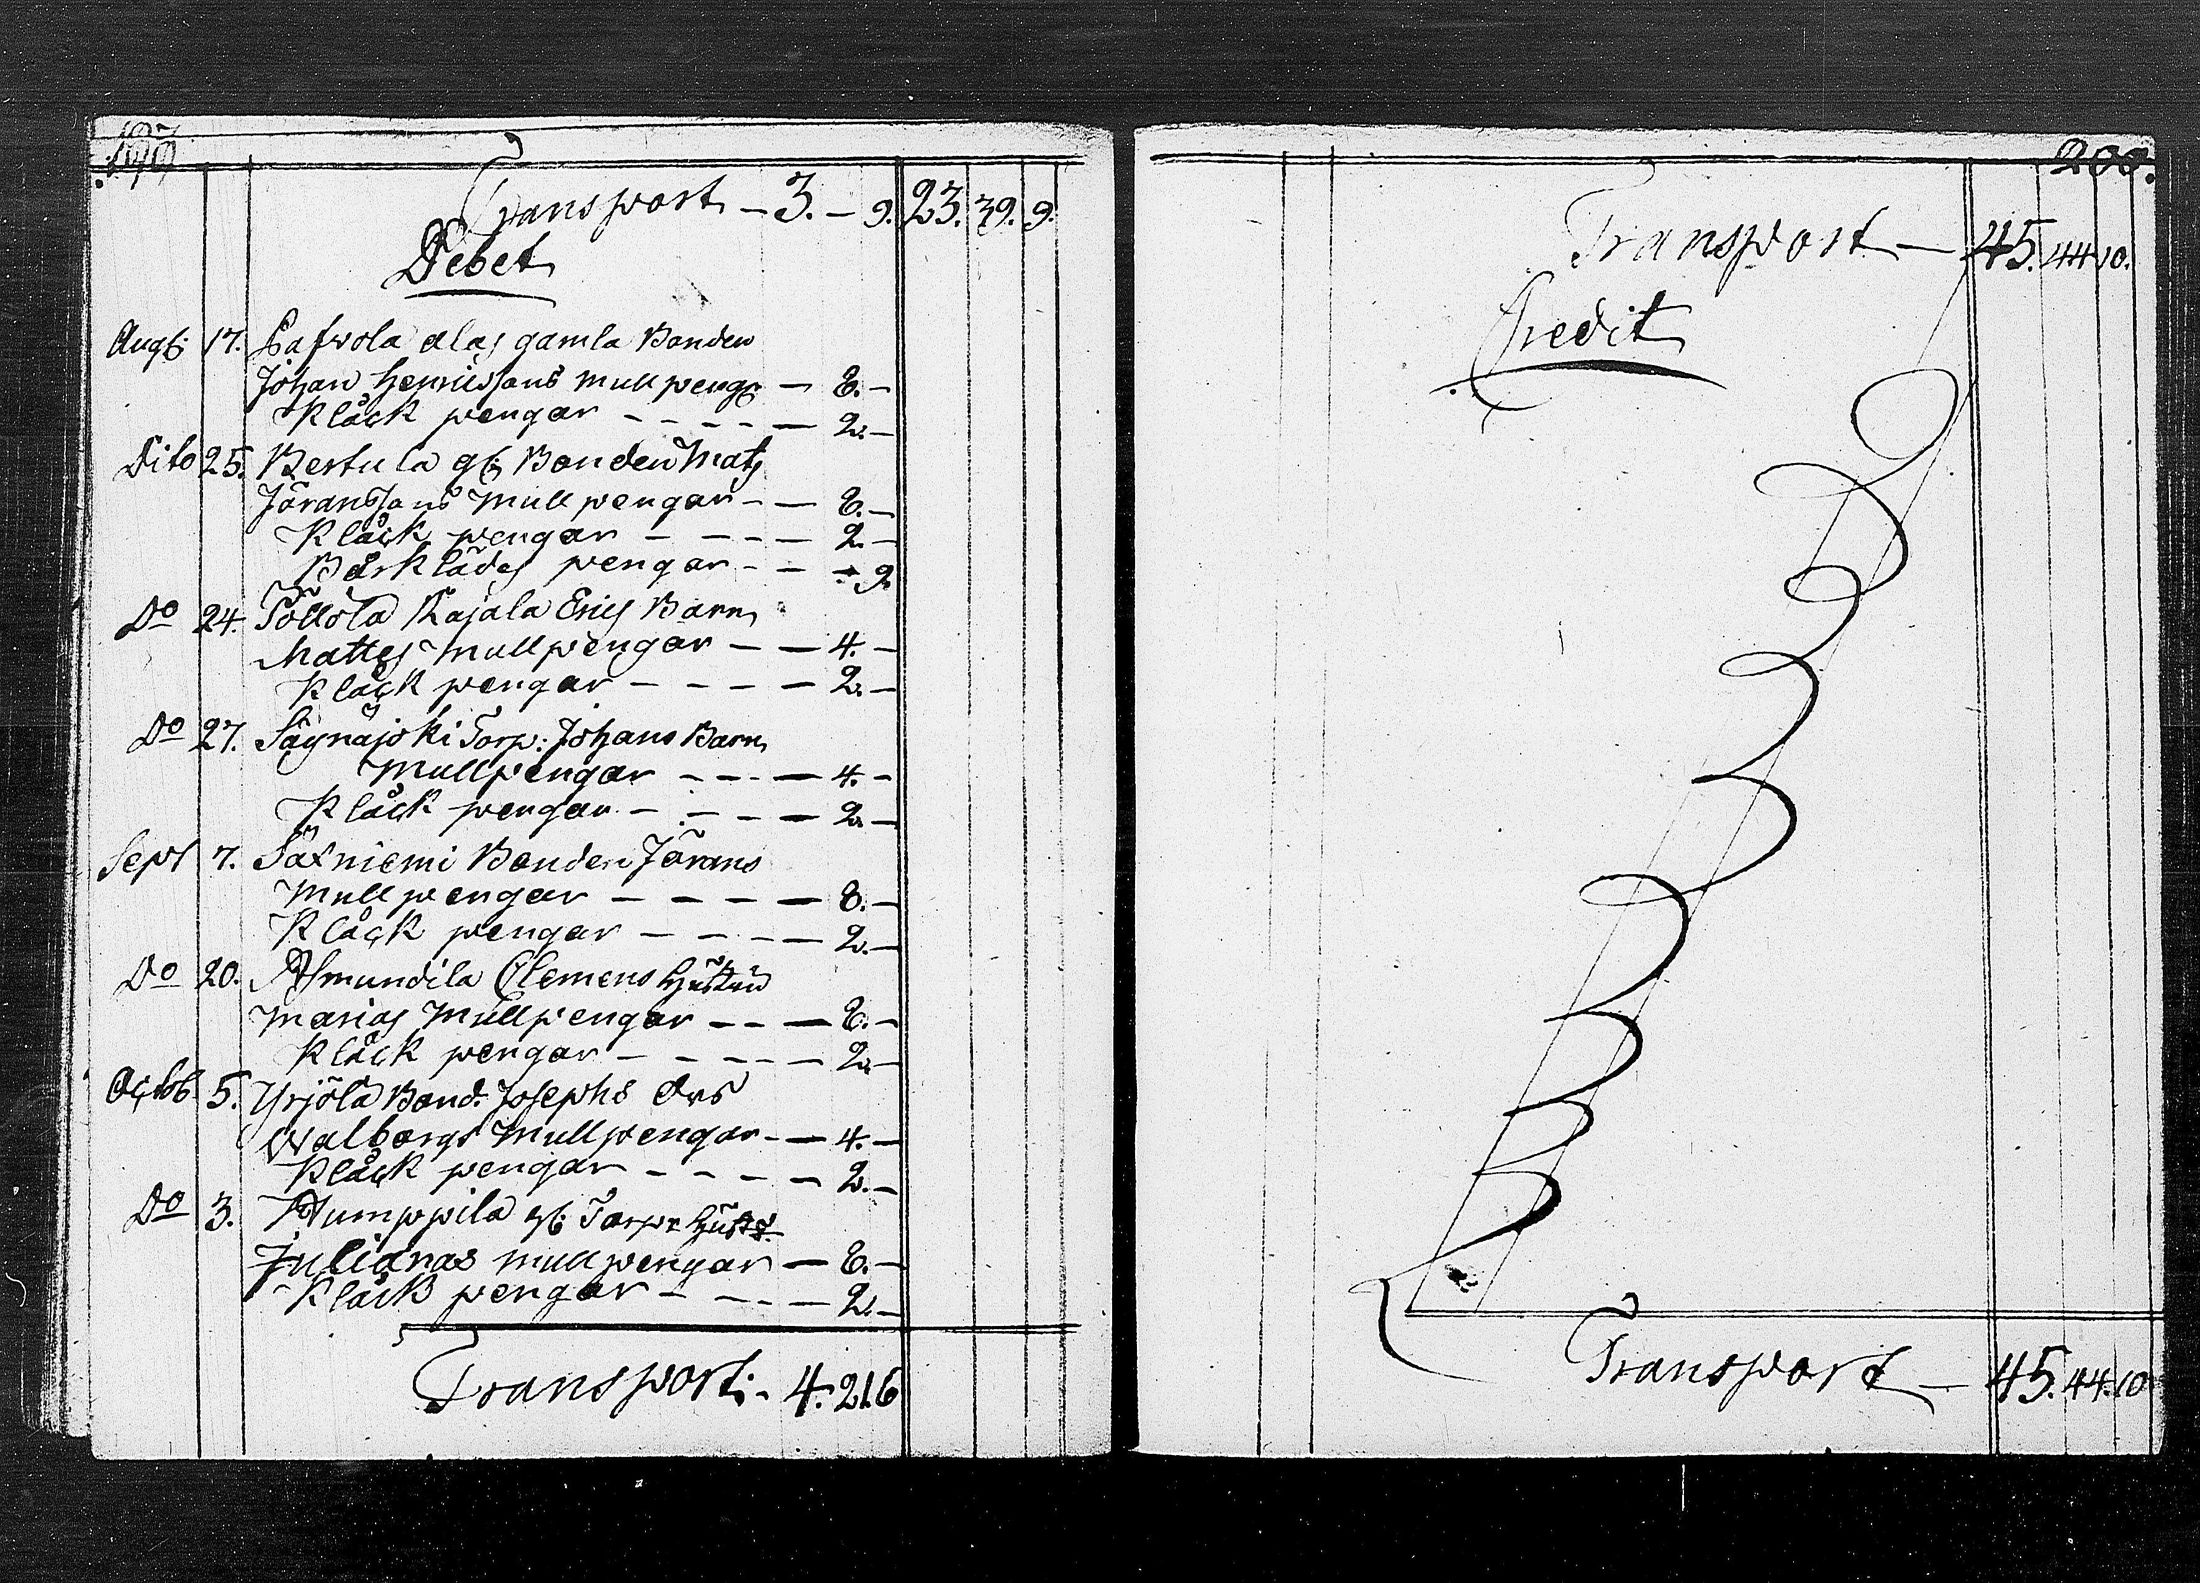 Transport – 3. – 9. 23. 39. 9.
Debet
Augt: 17. Pafwola alas gamla Bonden
Johan Henricssons mullpengr – 8. –
Kläck pengar – – – – 2. –
Dito 25. Bertula gl: Bonden Mats
Jöranssons Mull pengar – – 8. –
Kläck pengar – – – – 2. –
Bårklädes pengar – – – 9.
Do 24. Töllölä Kajala Erics Barn
Mattes Mullpengar – – 4. –
Kläck pengar – – – – 2. –
Do 27. Säynäjoki Torp: Johans Barn
Mullpengar – – – 4. –
Kläck pengar – – – – 2. –
Sept 7. Saxniemi Bonden Jörans
Mull pengar – – – – 8. –
Kläck pengar – – – – 2. –
Do 20. Asmundila Clemens Hustru
Marias Mullpengar – – – 8. –
Kläck pengar – – – – 2. –
Octob 5. Yrjölä Bond: Josephs Drs
Walborgs Mullpengar – – 4. –
Kläck pengar – – – – 2. –
Do 3. Humppila gl: Torpr Hustr.
Julianas mullpengar – 8. –
Kläck pengar – – – – 2. –
Transport: – 4. 21. 6
200.
Transport – 45. 44. 10.
Credit
Transport – 45. 44. 10